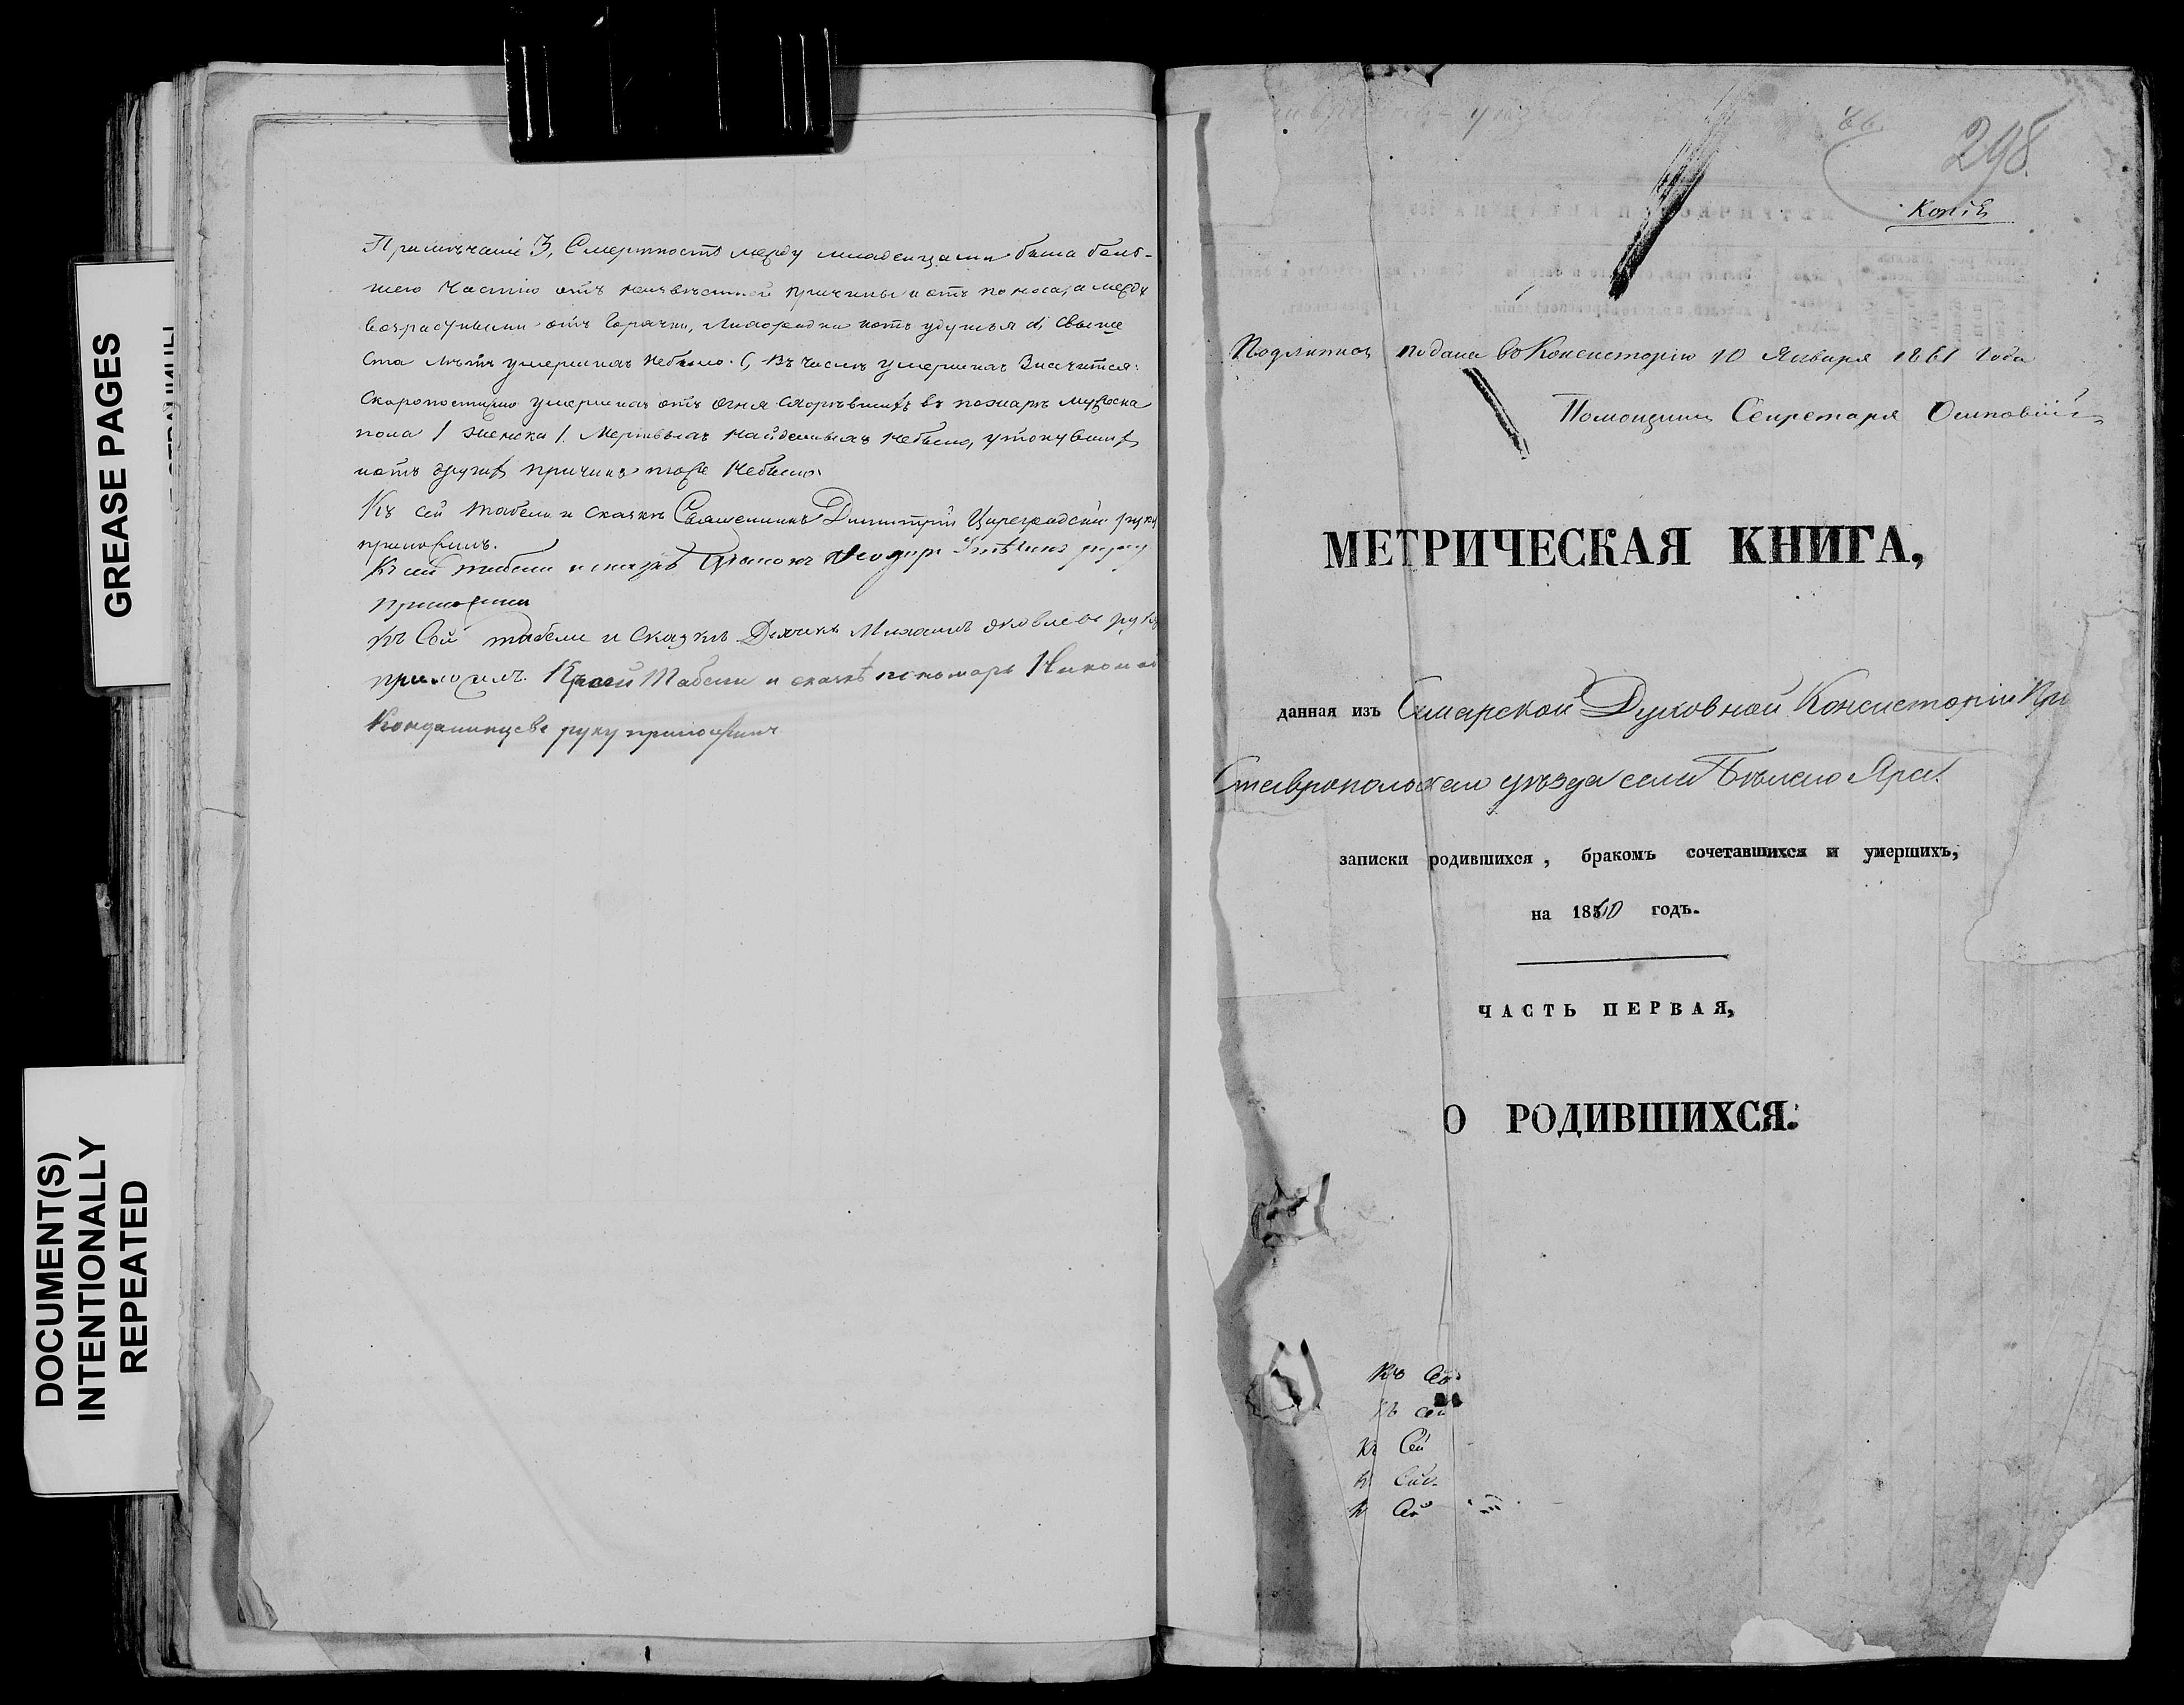 GREASE PAGES
DOCUMENT(S)
INTENTIONALLY
REPEATED
Примѣчаніе 3, Смертность между младенцами была боль-
шею Частію отъ неизвѣстной причины и отъ поноса, а между
возрастными отъ Горячки, Лихорадки и отъ удушья d, свыше
Ста лѣтъ умершихъ небыло. С, Въ числѣ умершихъ Значится:
Скоропостижно умершихъ отъ огня сгорѣвшихъ въ пожарѣ мужеска
пола 1 женска 1. Мертвыхъ найденныхъ небыло, утонувшихъ
и отъ другихъ причинъ тоже небыло.
Къ сей табели и сказкѣ Священникъ Димитрій Цареградскій руку
приложилъ.
Къ сей табели и сказкѣ Діаконъ Ѳеодоръ руку
приложилъ
Къ Сей табели и Сказкѣ Дьячекъ Михаилъ Яковлевъ руку
приложилъ. Къ сей Табели и сказкѣ пономарь Николай
руку приложилъ
298
Копія
Подлинная подана въ Консисторію 10 Января 1861 года
Помощникъ Секретаря
МЕТРИЧЕСКАЯ КНИГА,
данная изъ Самарской Духовной Консисторіи При
Ставропольскаго уѣзда села Бѣлаго Яра.
записки родившихся, бракомъ сочетавшихся и умершихъ,
на 1860 годъ.
ЧАСТЬ ПЕРВАЯ,
О РОДИВШИХСЯ.
Къ Сей
Къ сей
Къ Сей
Къ Сей
Къ Сей